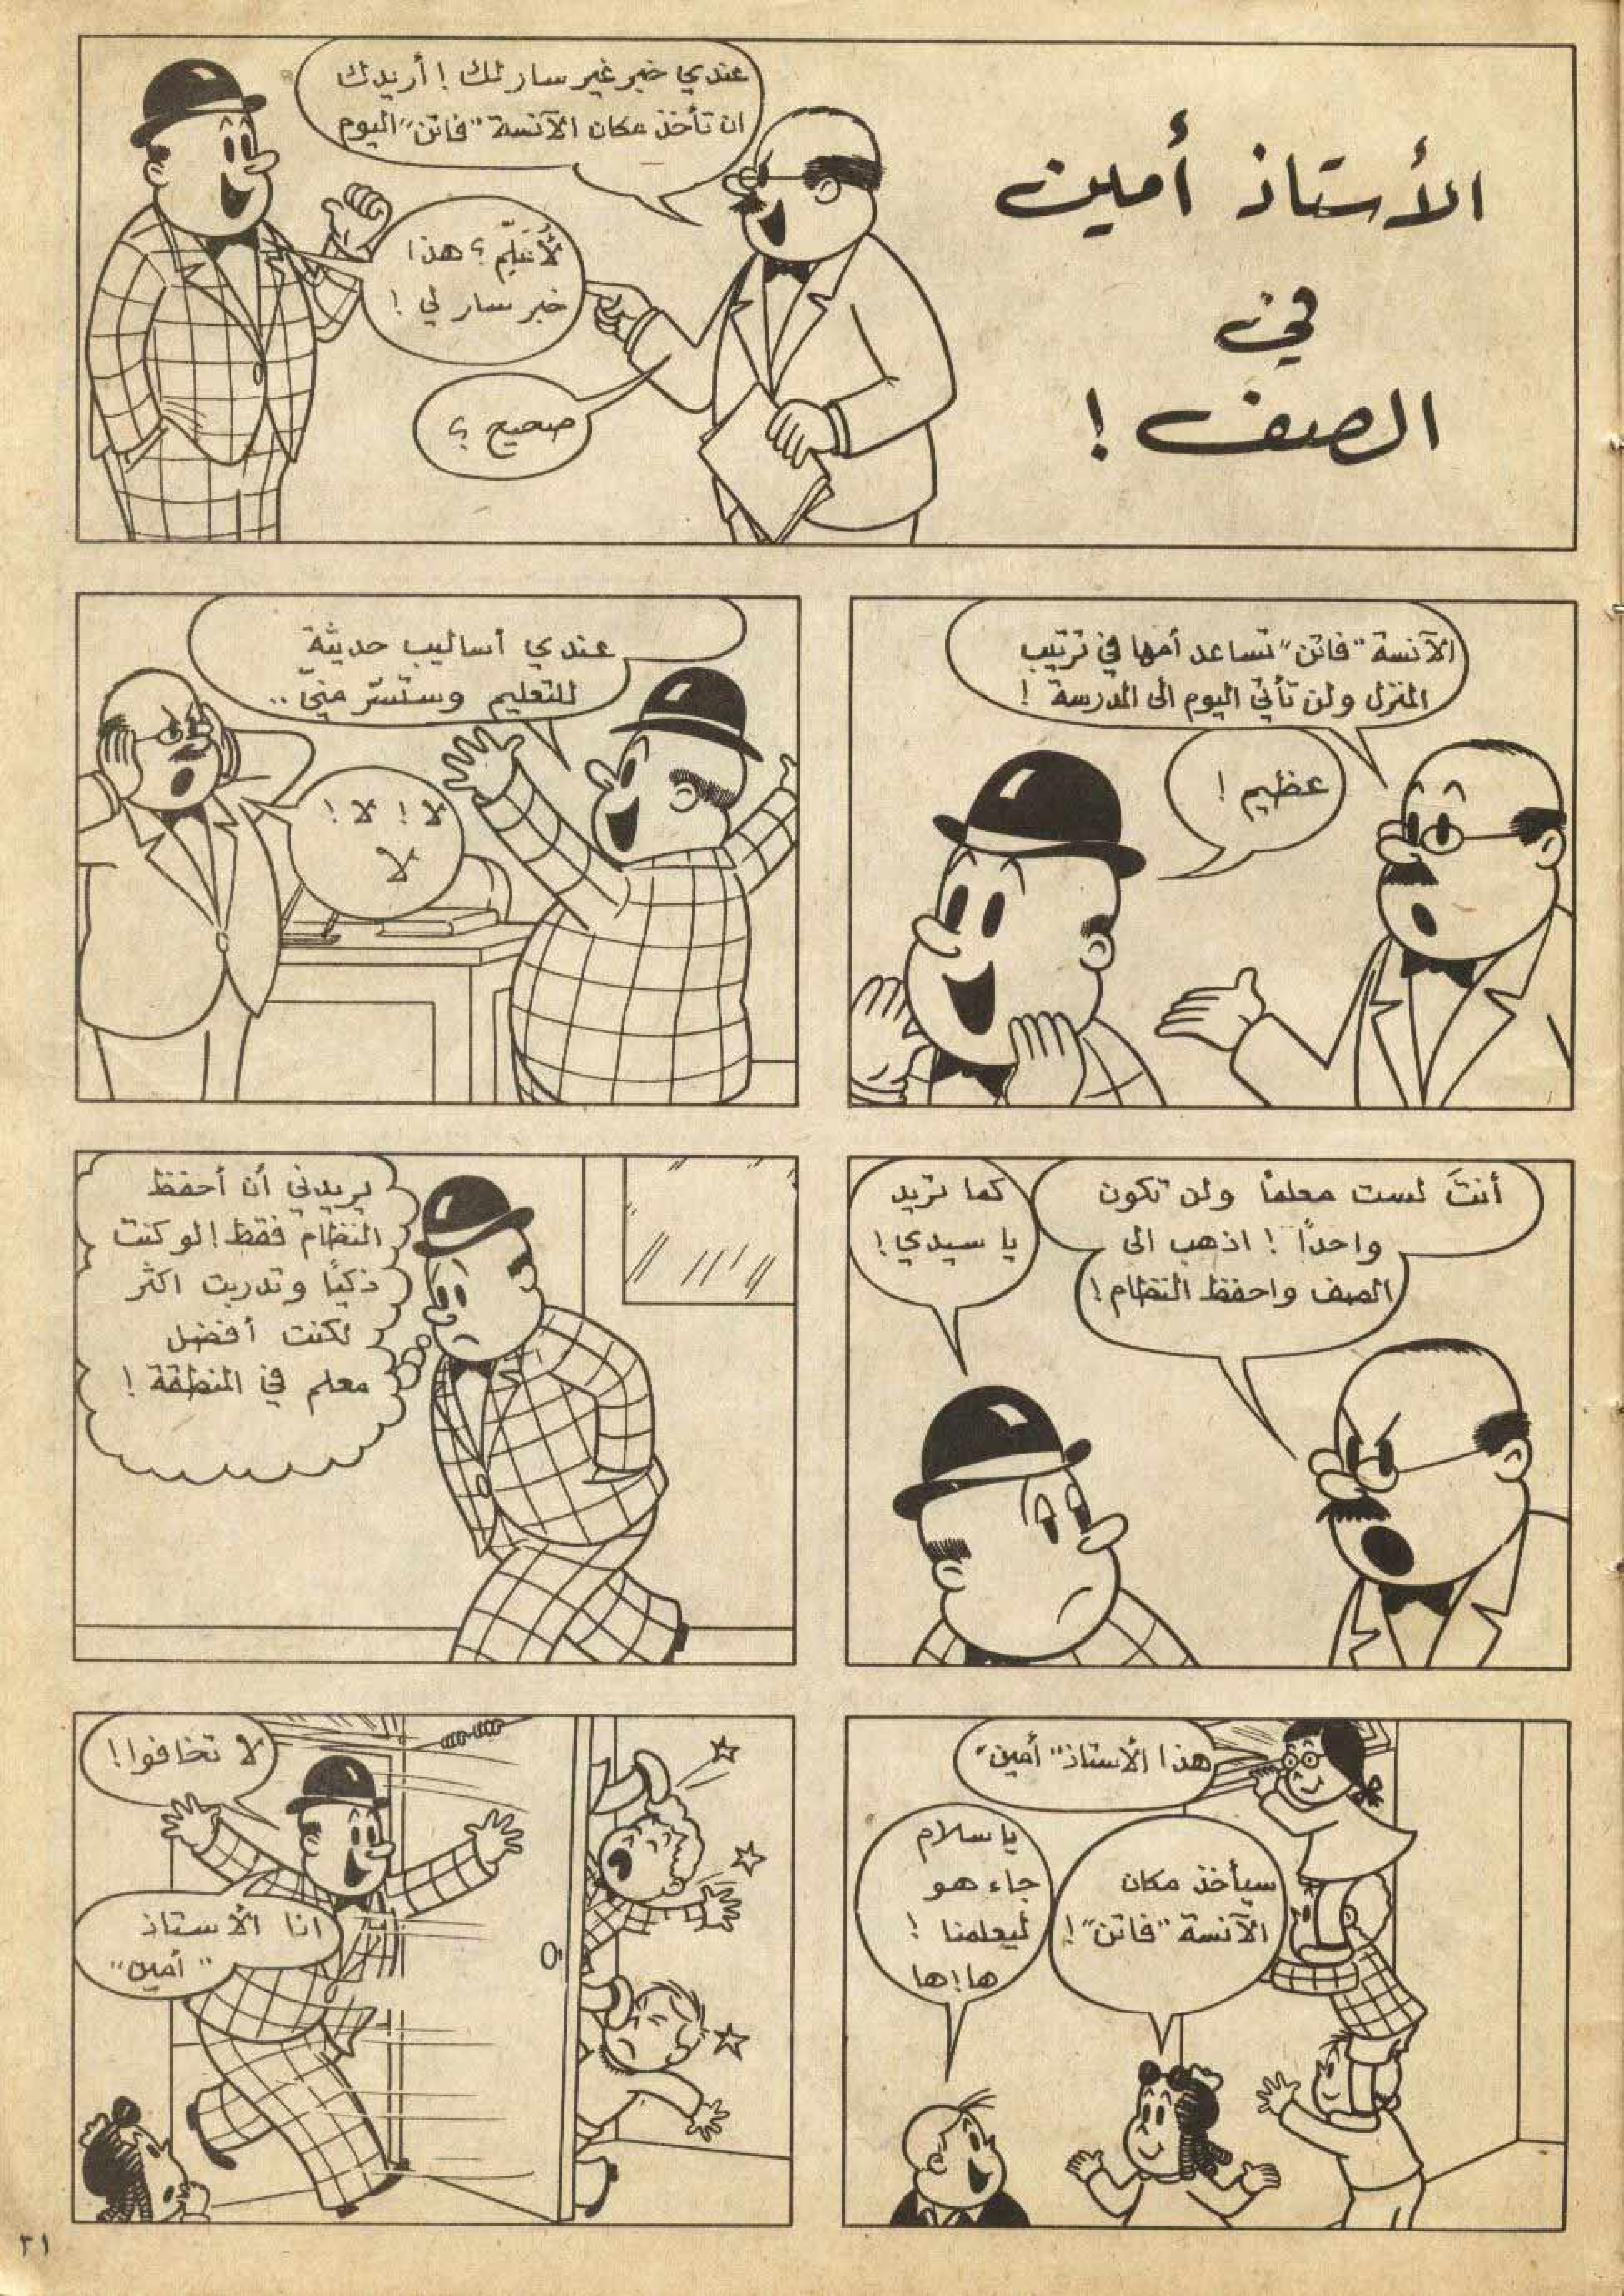 الأستاذ أمين
في
الصف !
عندي خبر غير سار لك ! أريدك
ان تأخذ مكان الآنسة "فاتن" اليوم
لأُعَلِّم ؟ هذا
خبر سار لي !
صحيح ؟
الآنسة "فاتن" تساعد أمها في ترتيب
المنزل ولن تأتي اليوم الى المدرسة !
عظيم !
عندي أساليب حديثة
للتعليم وستسرّ منيّ ..
لا ! لا !
لا
أنتَ لست معلماً ولن تكون
واحداً ! اذهب الى
الصف واحفظ النظام !
كما تريد
يا سيدي !
يريدني أن أحفظ
النظام فقط ! لو كنت
ذكيًا وتدربت اكثر
لكنت أفضل
معلم في المنطقة !
هذا الأستاذ "أمين"
سيأخذ مكان
الآنسة "فاتن" !
يا سلام
جاء هو
ليعلمنا !
ها ! ها
لا تخافوا !
انا الأستاذ
"أمين"
٣١